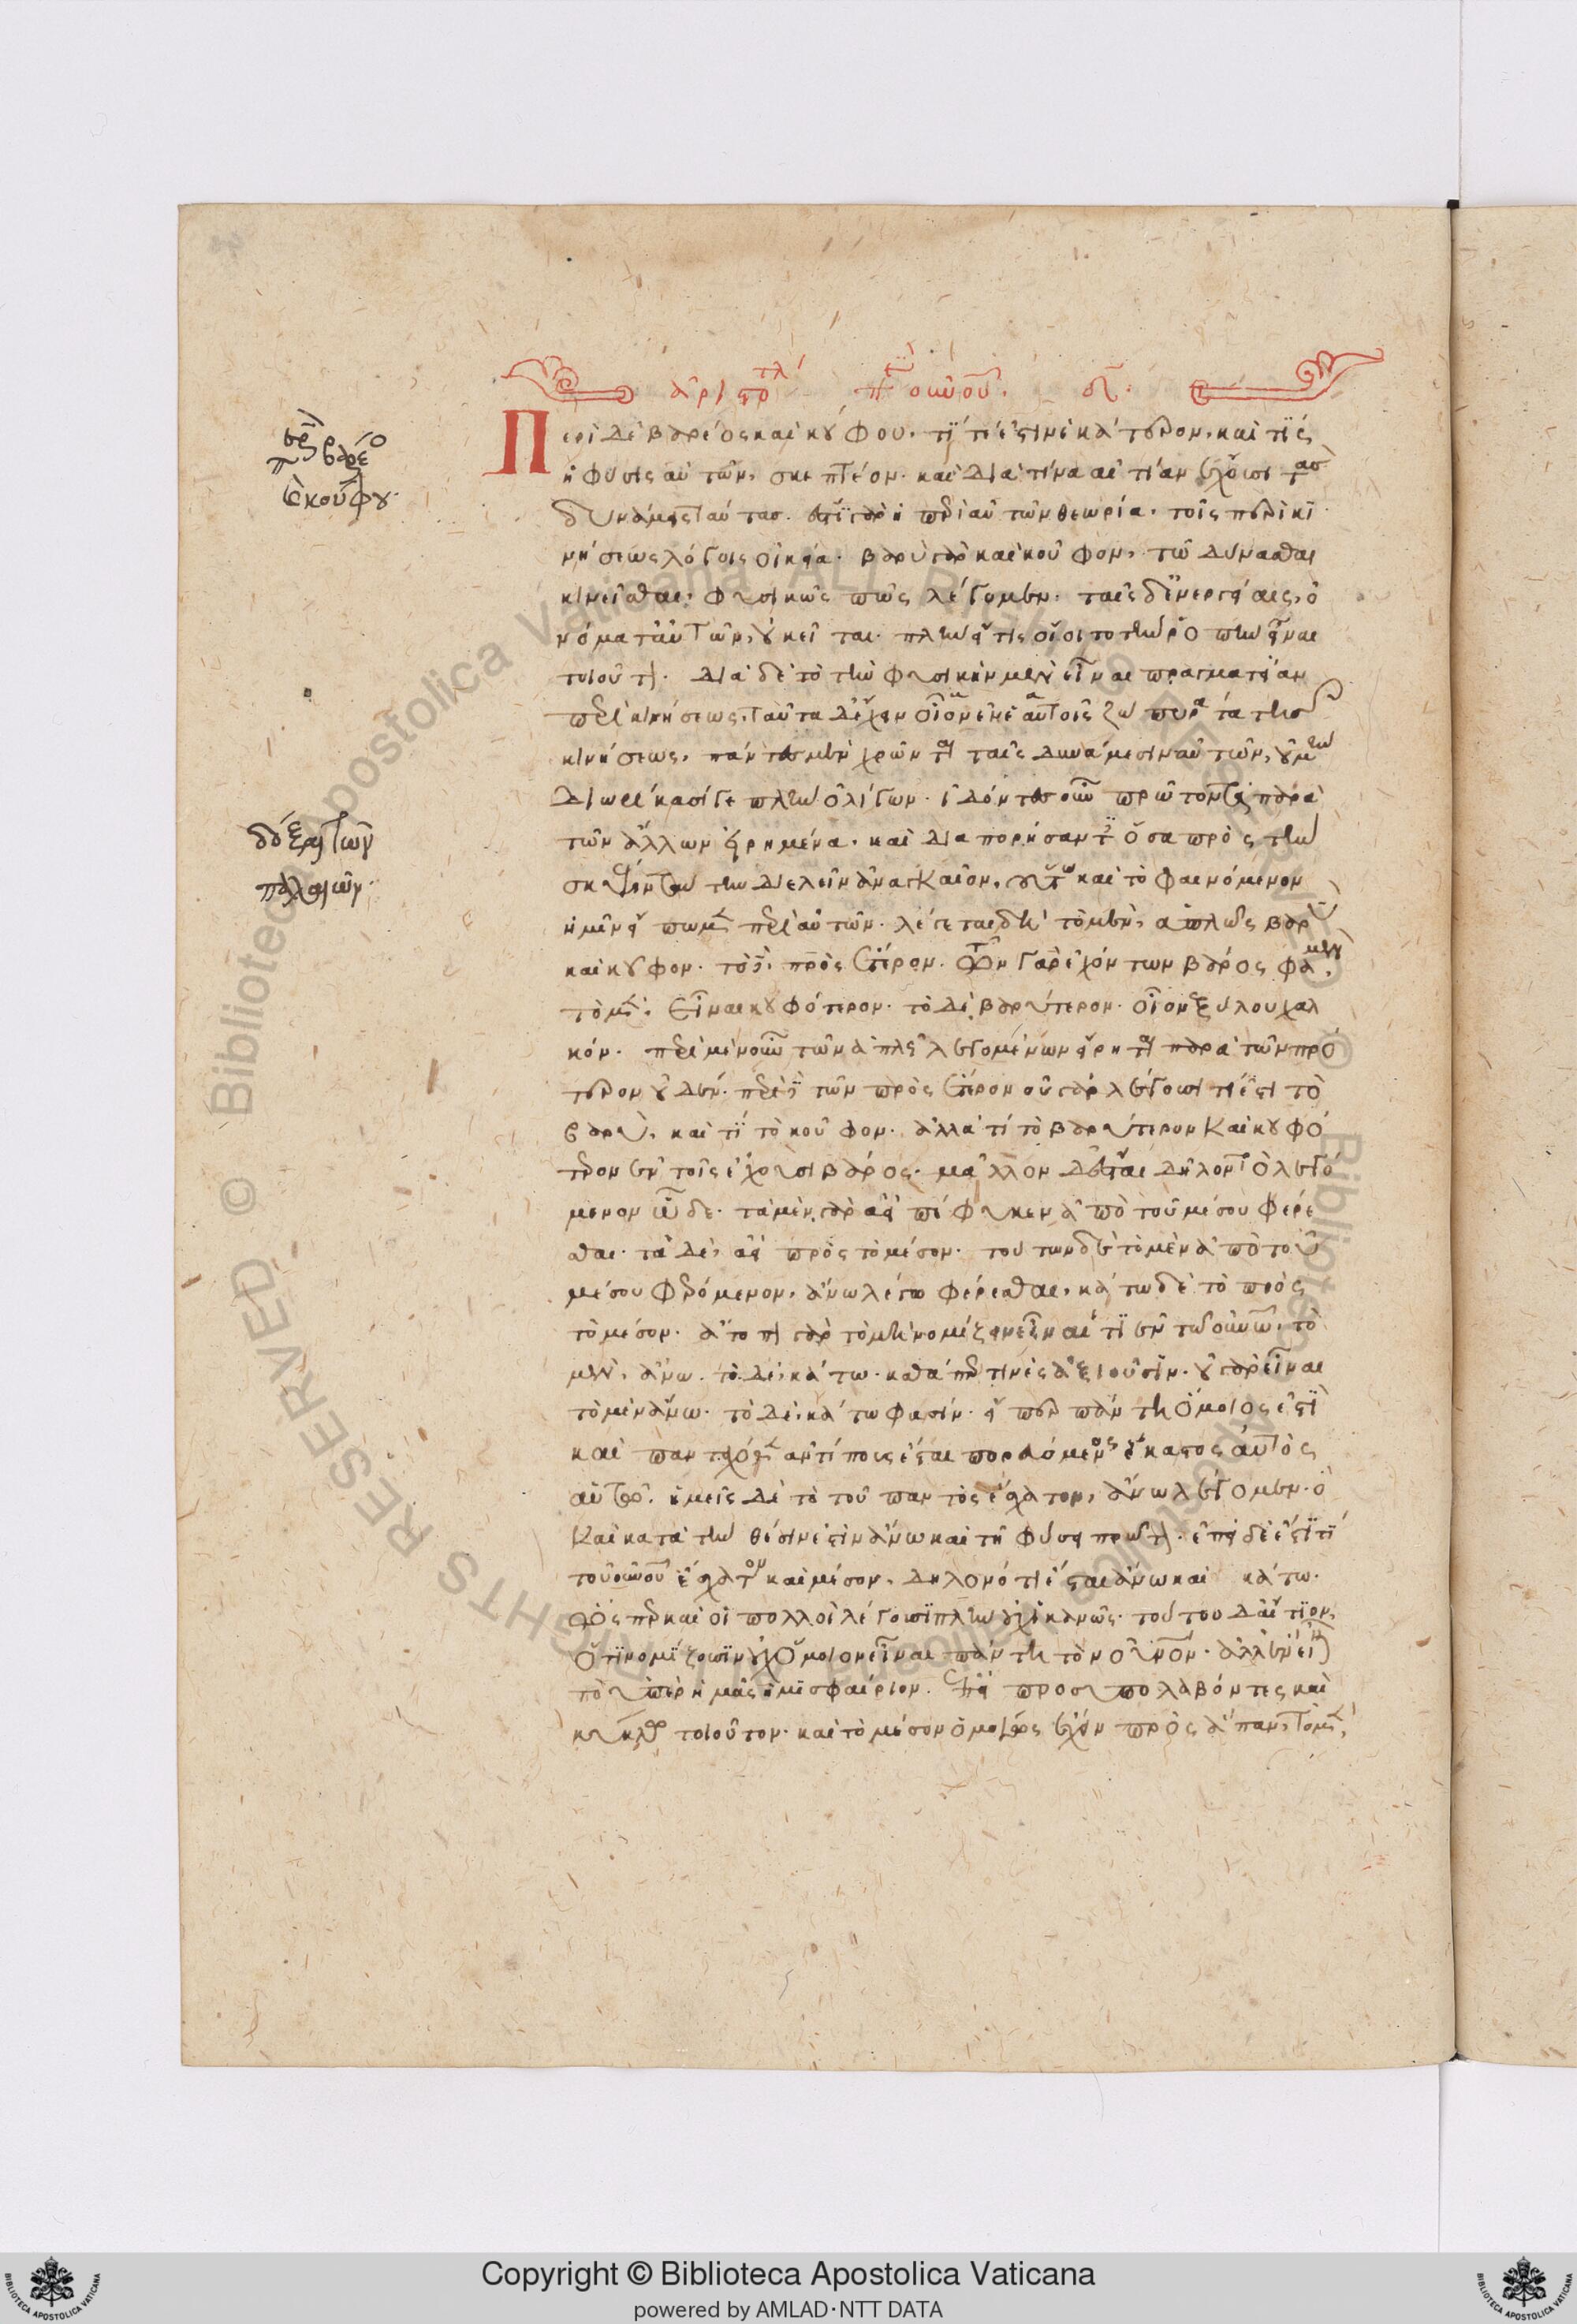 ἀριστοτέλους περὶ οὐρανοῦ. δ.
Περὶ δὲ βαρέος καὶ κούφου, τί τέ ἐστιν ἑκάτερον, καὶ τίς
ἡ φύσις αὐτῶν, σκεπτέον. καὶ διὰ τίνα αἰτίαν ἔχουσι τὰς
δυνάμεις ταύτας. ἔστι γὰρ ἡ περὶ αὐτῶν θεωρία, τοῖς περὶ κι
νήσεως λόγοις οἰκεία. βαρὺ γὰρ καὶ κοῦφον, τῶ δύνασθαι
κινεῖσθαι, φυσικῶς πως λέγομεν. ταῖς δὲ ἐνεργείαις, ὀ
νόματα αὐτῶν, οὐ κεῖται. πλὴν εἴ τις οἴοιτο τὴν ῥοπὴν εἶναι
τοιοῦτον. διὰ δὲ τὸ τὴν φυσικὴν μὲν εἶναι πραγματείαν
περὶ κινήσεως, ταῦτα δ' ἔχειν οἷον ἐν ἑαυτοῖς ζωπυρ' ἄττα τῆς
κινήσεως, πάντες μὲν χρῶνται ταῖς δυνάμεσιν αὐτῶν, οὐ μὴν
διωρίκασί γε πλὴν ὀλίγων. ἰδόντες οὖν πρῶτον τὰ παρὰ
τῶν ἄλλων εἰρημένα, καὶ διαπορήσαντες ὅσα πρὸς τὴν
σκέψιν ταύτην διελεῖν ἀναγκαῖον, οὕτω καὶ τὸ φαινόμενον
ἡμῖν εἴπωμεν περὶ αὐτῶν. λέγεται δὴ τὸ μὲν, ἁπλῶς βαρὺ
καὶ κοῦφον. τὸ δὲ, πρὸς ἕτερον. τῶν γὰρ ἐχόντων βάρος φαμὲν,
τὸ μὲν, εἶναι κουφότερον. τὸ δὲ βαρύτερον. οἷον ξύλου χαλ
κόν. περὶ μὲν οὖν τῶν ἁπλῶς λεγομένων εἴρηται παρὰ τῶν πρό
τερον οὐδέν. περὶ δὲ τῶν πρὸς ἕτερον οὐ γὰρ λέγουσι τί ἐστι τὸ
βαρὺ, καὶ τί τὸ κοῦφον. ἀλλὰ τί τὸ βαρύτερον καὶ κουφό
τερον ἐν τοῖς ἔχουσι βάρος. μᾶλλον δ' ἔσται δῆλον τὸ λεγό
μενον ὧδε. τὰ μὲν γὰρ ἀεὶ πέφυκεν ἀπὸ τοῦ μέσου φέρε
σθαι. τὰ δὲ, ἀεὶ πρὸς τὸ μέσον. τούτων δὲ τὸ μὲν ἀπὸ τοῦ
μέσου φερόμενον, ἄνω λέγω φέρεσθαι, κάτω δὲ τὸ πρὸς
τὸ μέσον. ἄτοπον γὰρ τὸ μὴ νομίζειν εἶναί τι ἐν τῶ οὐρανῶ, τὸ
μὲν, ἄνω. τὸ δὲ, κάτω. καθάπερ τινὲς ἀξιοῦσιν. οὐ γὰρ εἶναι
τὸ μὲν ἄνω. τὸ δὲ, κάτω φασίν. εἴπερ πάντη ὅμοιός ἐστι
καὶ πανταχόθεν ἀντίπους ἔσται πορευόμενος ἕκαστος αὐτὸς
αὑτῶ. ἡμεῖς δὲ τὸ τοῦ παντὸς ἔσχατον, ἄνω λέγομεν. ὃ
καὶ κατὰ τὴν θέσιν ἐστὶν ἄνω καὶ τῆ φύσει πρῶτον. ἐπεὶ δὲ ἐστί τι
τοῦ οὐρανοῦ ἔσχατον καὶ μέσον, δῆλον ὅτι ἔσται ἄνω καὶ κάτω.
ὥσπερ καὶ οἱ πολλοὶ λέγουσι πλὴν οὐχ ἱκανῶς. τούτου δ' αἴτιον,
ὅτι νομίζουσιν οὐχ ὅμοιον εἶναι πάντη τὸν οὐρανόν. ἀλλ' ἓν εἶναι
τὸ ὑπὲρ ἡμᾶς ἡμισφαίριον. ἐπεὶ προσυπολαβόντες καὶ
κύκλω τοιοῦτον. καὶ τὸ μέσον ὁμοίως ἔχειν πρὸς ἅπαν, τὸ μὲν,
περὶ βαρέο
καὶ κούφου.
δόξαι τῶν
παλαιῶν.
Copyright © Biblioteca Apostolica Vaticana
powered by AMLAD·NTT DATA